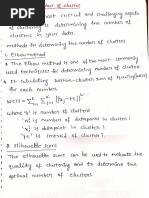 of clusters
most critical and challenging aspects
of clustering is determining the number of
clusters in your data.
methods for determining the number of clusters
1. Elbow method
The Elbow method is one of the most commonly
used techniques for determining number of clusters.
It calculating within-cluster sum of
for each
WCSS =
where 'k' is number of clusters
'n' is number of datapoint in cluster i
'xj' is datapoint in cluster i
is centroid of cluster i
2. Silhouette Score
The silhouette score can be used to evaluate the
quality of clustering and to determine the
optimal number of clusters.